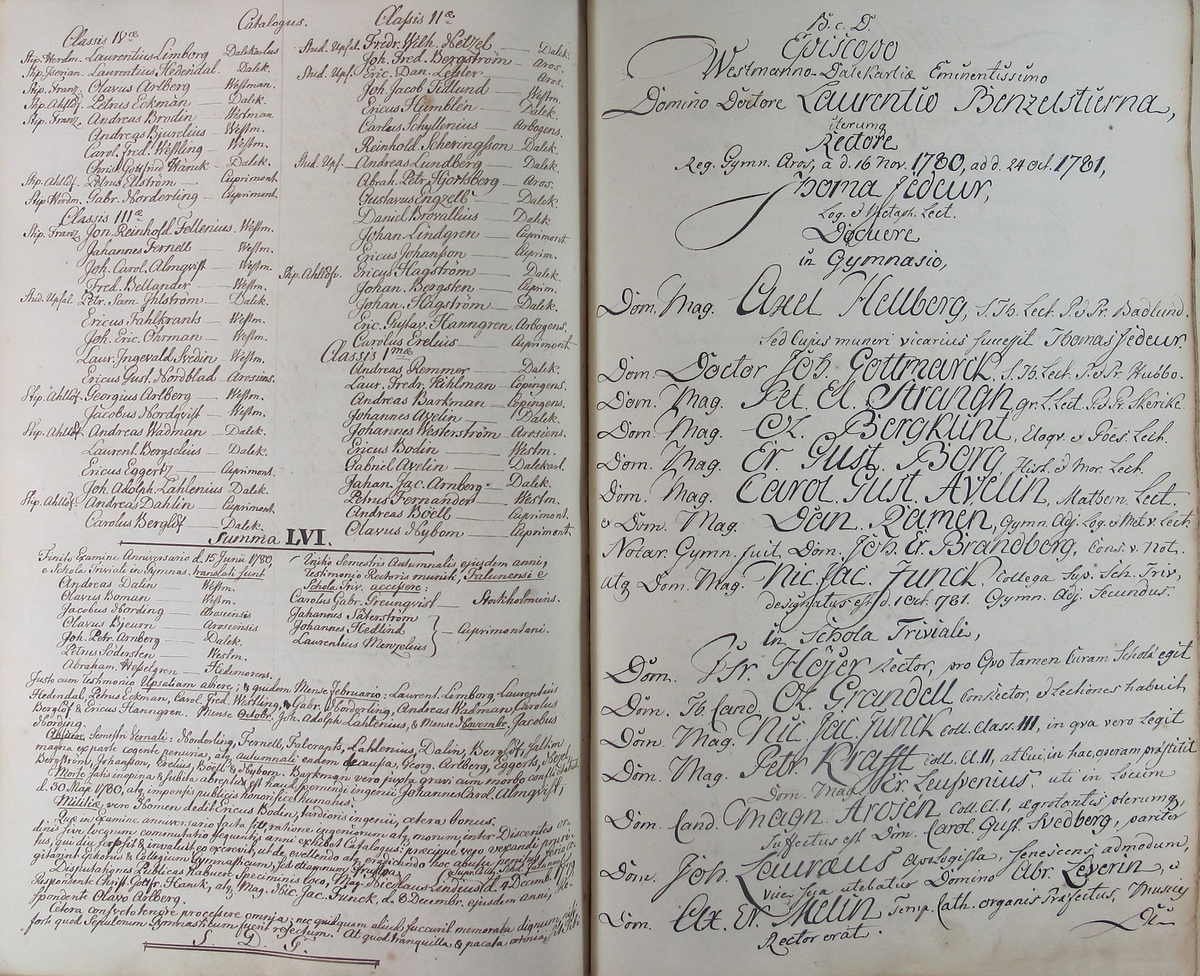 Catalogus.
Classis IV.æ
Stip. Nordm. Laurentius Limborg Dalekarlus
Laurentius Hedendal Dalek.
Stip. Franz. Olavus Arlberg Westman.
Stip. Ahllöf. Petrus Eckman Dalek.
Stip. Franz. Andreas Brodin Westman
Andreas Bjurelius Westm.
Carol. Fred. Westling Westm.
Christ. Gottfried Hanck Dalek.
Stip. Ahllöf. Petrus Ellström Cuprimont.
Stip. Nordm. Gabr. Norderling Cuprimont.
Classis III.æ
Stip. Franz. Jon. Reinhold Follenius. Westm.
Johannes Fernell Westm.
Joh. Carol. Almqvist Westm.
Fred. Bellander Westm.
Stud. Upsal. Petr. Sam. Ihlström Dalek.
Ericus Fahlkrants Westm.
Joh. Eric. Ohrman Westm.
Laur. Ingevald Nedin Westm.
Ericus Gust. Nordblad Arosiens.
Stip. Ahllöf. Georgius Arlberg Westm.
Jacobus Nordqvist Westm.
Stip. Ahllöf. Andreas Wadman Dalek.
Laurent. Bergselius Dalek.
Ericus Eggertz Cuprimont.
Joh. Adolph. Lahlenius Dalek.
Stip. Ahllöf. Andreas Dahlin Cuprimont.
Carolus Berglöf Dalek.
Classis II.æ
Stud. Upsal. Fredr. Wilh. Hetzel Dalek.
Joh. Fred. Bergström Aros.
Stud. Ups. Eric. Dan. Aros.
Joh. Jacob Fillund Westm.
Ericus Hamblin Dalek.
Carolus Schyllenius Arbogens.
Reinhold Scheringsson Dalek.
Stud. Ups. Andreas Lundberg Dalek.
Abrah. Petr. Hjortsberg Aros.
Gustavus Engzell Dalek.
Daniel Brovallius Dalek.
Johan Lindgren Cuprimont.
Ericus Johansson Cuprim.
Stip. Ahllöf. Ericus Hagström Dalek.
Johan. Bergsten Cuprim.
Johan. Hagström Dalek.
Eric. Gustav. Hanngren. Arbogens.
Carolus Erelius Cuprimont
Classis I.mæ
Andreas Remmer Dalek.
Laur. Fredr. Pihlman Copingens.
Andreas Barkman Copingens.
Johannes Avelin Dalek.
Johannes Westerström Arosiens.
Ericus Bodin Westm.
Gabriel Avelin Dalekarl.
Johan. Jac. Arnberg Dalek.
Petrus Fernander Westm.
Andreas Böell Cuprimont.
Olavus Nybom Cuprimont.
Summa LVI.
Finito Examine Anniversario d. 15 Junii 1780,
e Schola Triviali in Gymnas. translati sunt
Andreas Dalin Westm.
Olavus Boman Westm.
Jacobus Nording Arosiensis
Olavus Bjeurn Arosiensis
Joh. Petr. Arnberg Dalek.
Petrus Södersten Westm.
Abraham. Hesselgren Hedemorens.
Initio Semestris Autumnalis ejusdem anni,
Testimonio Rectoris muniti, Falunensi e
Schola Triv. accessere:
Carolus Gabr. Greunqvist Stockholmens.
Johannes Säterström
Johannes Hedlind Cuprimontani.
Laurentius Menzelius
Justo cum Testimonio Upsaliam abiere; & quidem Mense Februario: Laurent. Limborg, Laurentius
Hedendal, Petrus Eckman, Carol. Fred. Westling, & Gabr. Norderling, Andreas Wadman, Carolus
Berglöf & Ericus Hanngren. Mense Octobr. Joh. Adolph. Lahlenius, & Mense Novembr. Jacobus
Nording.
Semestri Vernali: Norderling, Fernell, Lahlenius, Dalin, Berglöf,
magna ex parte cogente penuria, atq autumnali eadem de causa, Georg. Arlberg, Eggerts,
Bergström, Johansson, Erelius, Böell & Nybom. Barkman vero justa gravi cum morbo
Morte satis inopina & subita abreptus est haud spernendi ingenii Johannes Carol. Almqvist,
d. 30 Maji 1780, atq impensis publicis honorifice humatus.
Militiæ vero Nomen dedit Ericus Bodin, tardioris ingenii, cetera bonus.
Quæ in Examine anniversario facta ratione ingeniorum atq morum, inter Discentes
locum commutatio sequentis anni exhibet Catalogus;
Disputationes Publicas habuere Speciminis loco, Mag. Nicolaus Lindewald, d. 4 Decemb. 1779
Respondente Christ. Gottfr. Hanck, atq Mag. Nic. Jac. Funck, d. 8 Decembr. ejusdem anni,
spondente Olavo Arlberg.
Cetera consveto tenore processere omnia; nec quidquam aliud succurrit memoratu dignum,
forte quod Sepulcrum Gymnasticum fuerit refectum. At quod tranquilla & pacata omnia,
S. D. G.
B. c. D.
Episcopo
Westmanno-Dalekarliæ Eminentissimo
Domino Doctore Laurentio Benzelstierna,
iterumq
Rectore
Reg. Gymn. Aros. a d. 16 Nov. 1780, ad d. 24 Oct. 1781,
Thoma Fedeur,
Log. & Metaph. Lect.
Docuere
in Gymnasio,
Dom. Mag. Axel Hellberg, S. Th. Lect. P. & Pr. Badlund.
sed Cujus muneri vicarius successit Thomas Fedeur.
Dom. Doctor Joh. Gottmarck, S. Th. Lect. P. & Pr. Hubbo.
Dom. Mag. Pet. El. Strangh, gr. L. Lect. P. & Pr. Skerike.
Dom. Mag. Ol. Bergklint, Eloqv. & Poës. Lect.
Dom. Mag. Er. Gust. Berg, Hist. & Mor. Lect.
Dom. Mag. Carol. Gust. Avelin, Mathem. Lect.
& Dom. Mag. Dan. Ramen, Gymn. Adj. Log. & Met. v. Lect.
Notar. Gymn. fuit Dom. Joh. Er. Brandberg, Cons. v. Not.,
atq Dom. Mag. Nic. Jac. Funck, Collega Sup. Sch. Triv.,
designatus est d. 1 Oct. 781. Gymn. Adj. Secundus.
in Schola Triviali,
Dom. Höjer Rector, pro Qvo tamen Curam Scholæ egit
Dom. Th. Cand. Ol. Grandell Conrector, & Lectiones habuit,
Dom. Mag. Nic. Jac. Funck coll. Class. III, in qva vero legit
Dom. Mag. Petr. Krafft coll. Cl. II, at Cui, in hac, operam præstitit
Dom. Mag. Er. Leufvenius. uti in Locum
Dom. Cand. Magn. Arosin Coll. Cl. I, ægrotantis plerumq,
suffectus est Dom. Carol. Gust. Svedberg, pariter
Dom. Joh. Lauræus Apologista, senescens admodum,
vice sua utebatur Domino Abr. Leverin, &
Dom. Ax. Er. Melin Temp. Cath. organis Præfectus, Musices
Rector erat.